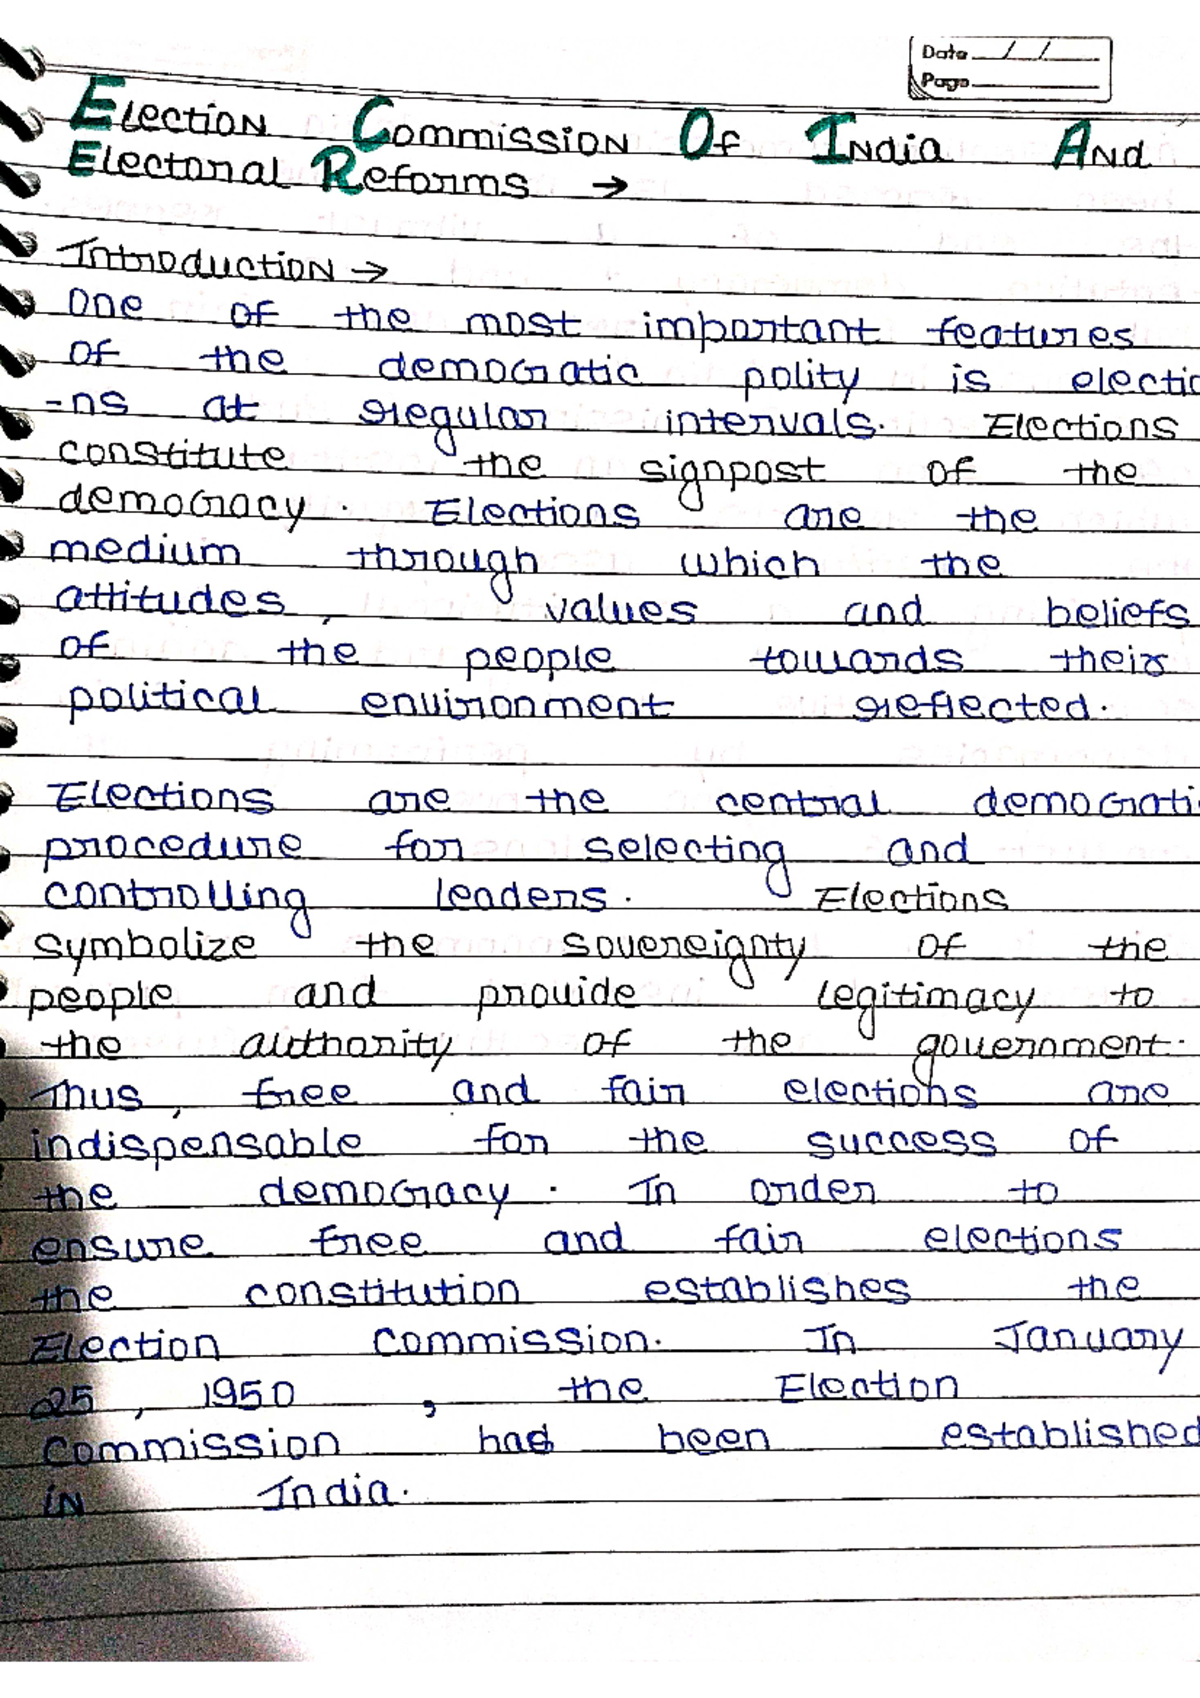 Date / /
Page
Election Commission Of India And
Electoral Reforms →
Introduction →
One of the most important features
of the democratic polity is electio
-ns at regular intervals. Elections
constitute the signpost of the
democracy. Elections are the
medium through which the
attitudes, values and beliefs
of the people towards their
political environment reflected.
Elections are the central democrati
procedure for selecting and
controlling leaders. Elections
symbolize the sovereignty of the
people and provide legitimacy to
the authority of the government.
Thus, free and fair elections are
indispensable for the success of
the democracy. In order to
ensure free and fair elections
the constitution establishes the
Election Commission. In January
25, 1950, the Election
Commission had been established
in India.